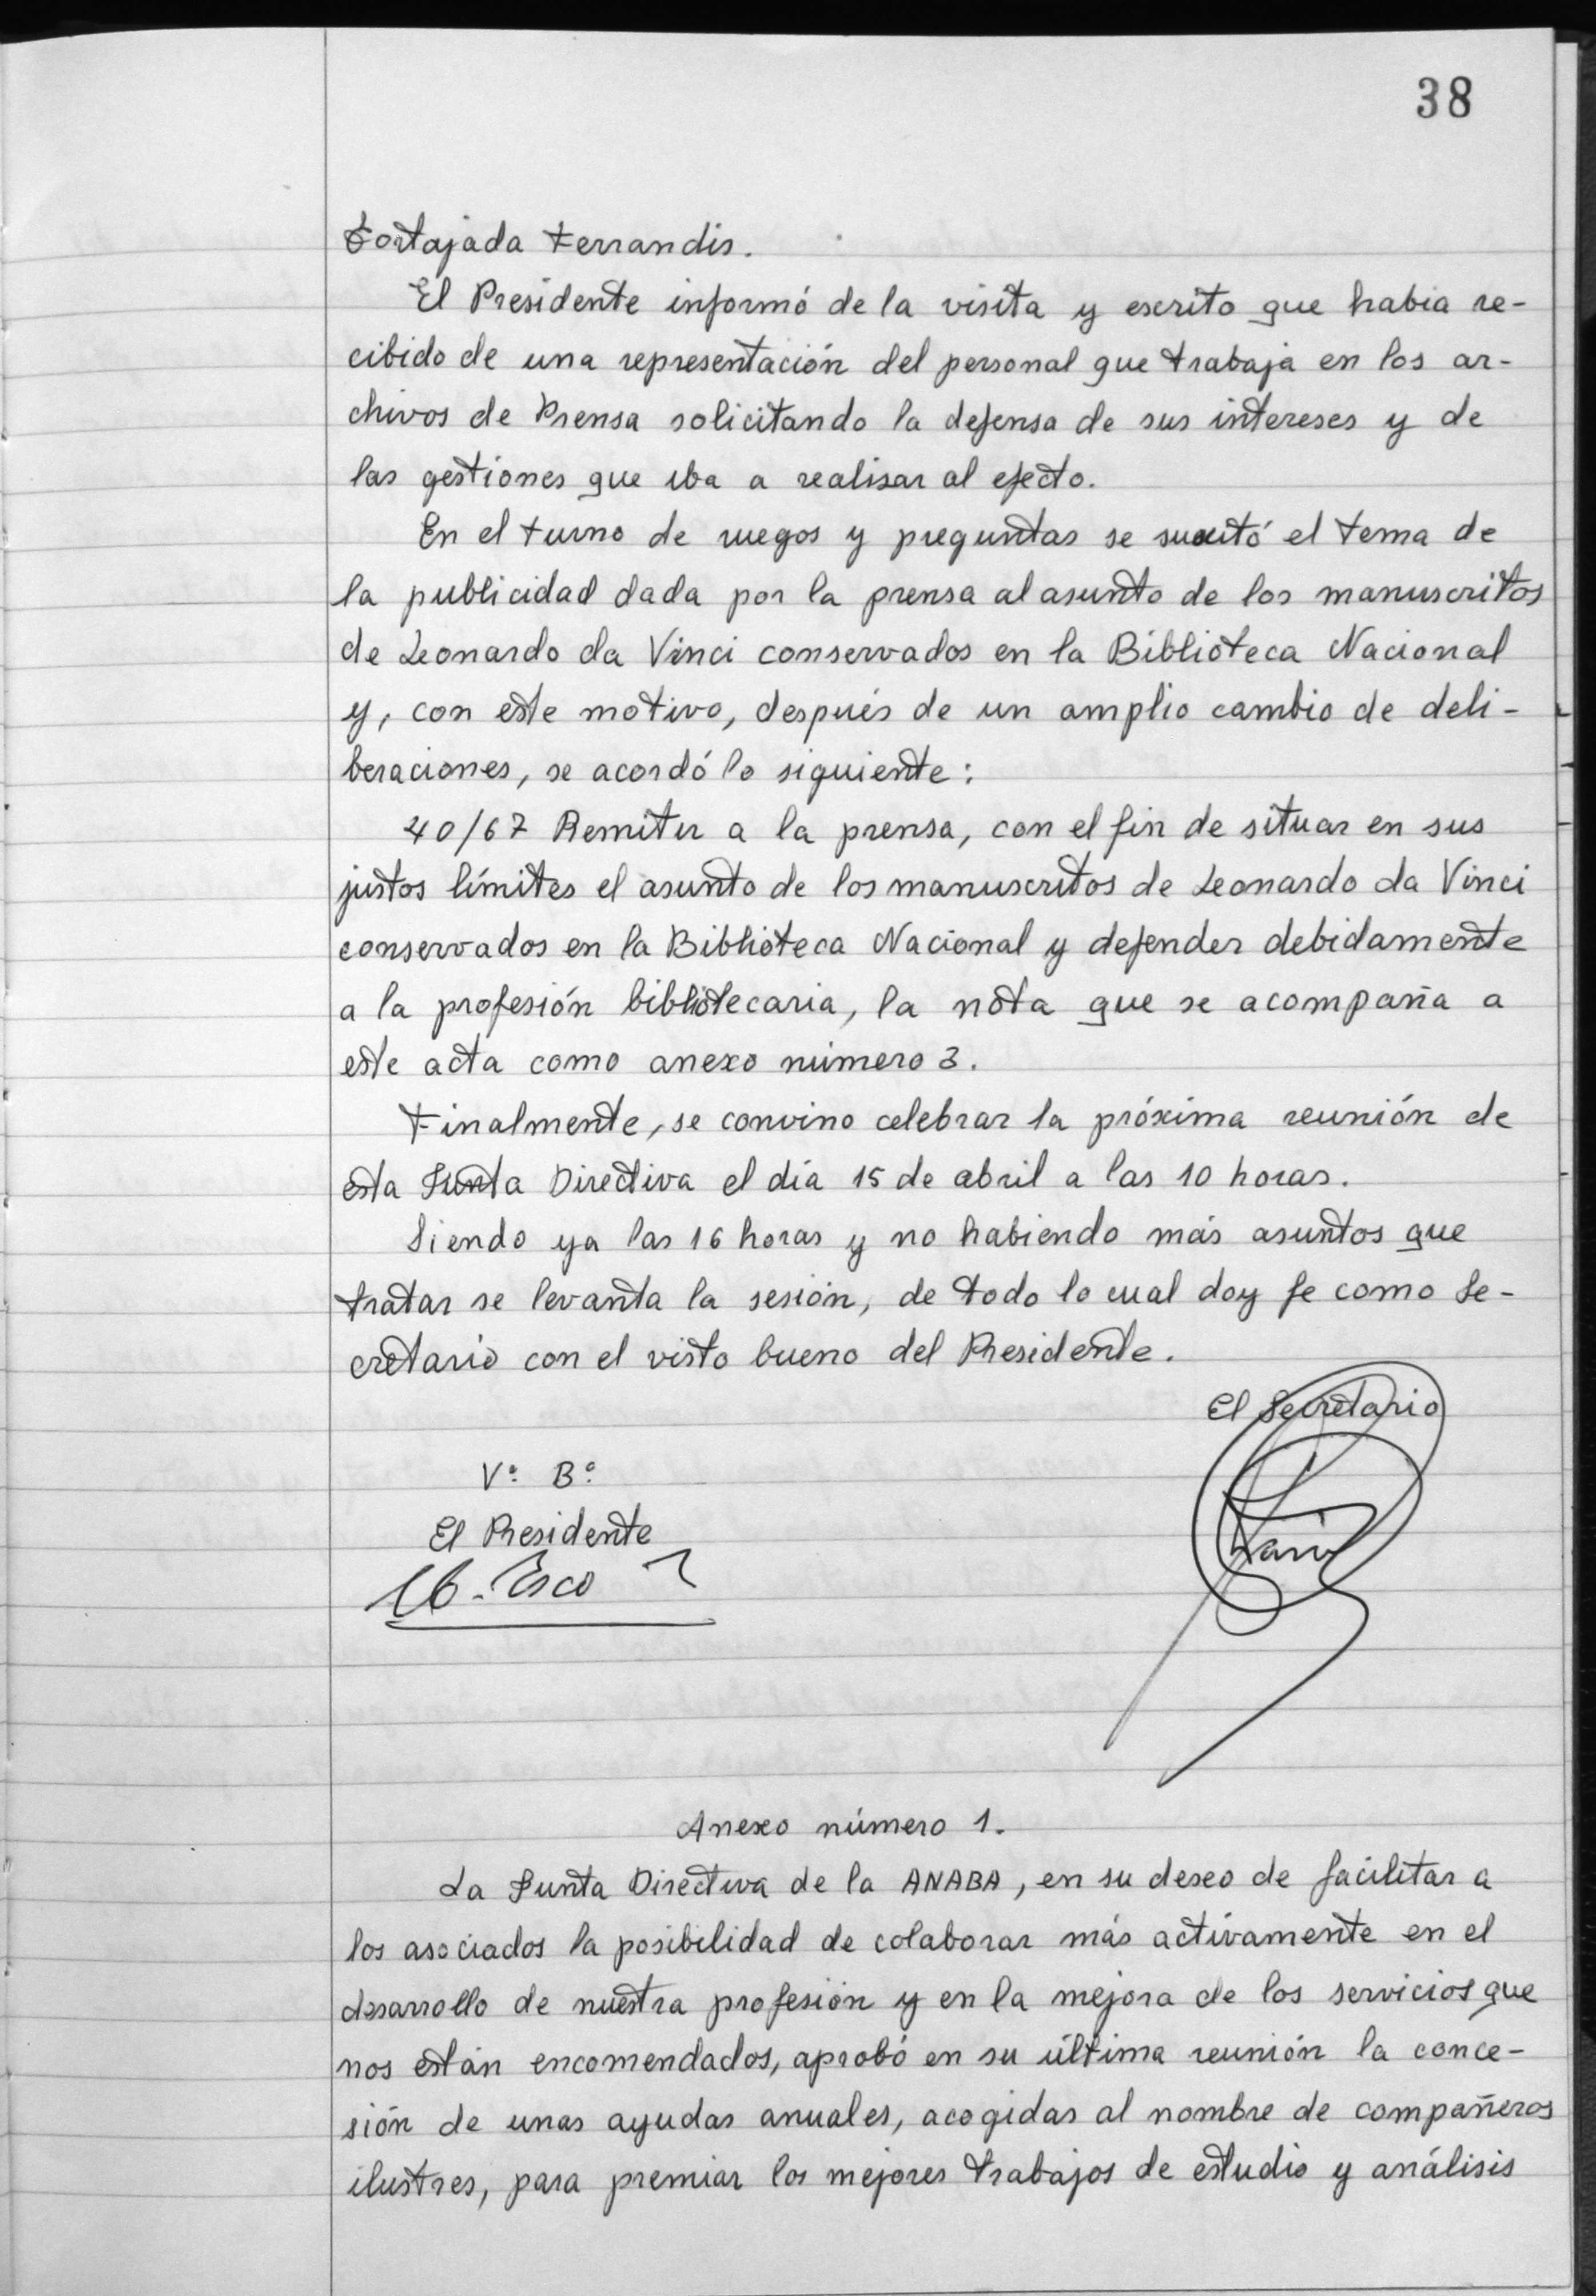 38
Tortajada Ferrandis.
El Presidente informó de la visita y escrito que habia re-
cibido de una representación del personal que trabaja en los ar-
chivos de Prensa solicitando la defensa de sus intereses y de
las gestiones que iba a realisar al efecto.
En el turno de ruegos y preguntas se suscitó el tema de
la publicidad dada por la prensa al asunto de los manuscritos
de Leonardo da Vinci conservados en la Biblioteca Nacional
y, con este motivo, después de un amplio cambio de deli-
beraciones, se acordó lo siguiente:
40/67 Remitir a la prensa, con el fin de situar en sus
justos límites el asunto de los manuscritos de Leonardo da Vinci
conservados en la Biblioteca Nacional y defender debidamente
a la profesión bibliotecaria, la nota que se acompaña a
este acta como anexo número 3.
Finalmente, se convino celebrar la próxima reunión de
esta Junta Directiva el día 15 de abril a las 10 horas.
Siendo ya las 16 horas y no habiendo más asuntos que
tratar se levanta la sesión, de todo lo cual doy fe como Se-
cretario con el visto bueno del Presidente.
El Secretario
Vº Bº
El Presidente
Esco
Anexo número 1.
La Junta Directiva de la ANABA, en su deseo de facilitar a
los asociados la posibilidad de colaborar más activamente en el
desarrollo de nuestra profesión y en la mejora de los servicios que
nos están encomendados, aprobó en su última reunión la conce-
sión de unas ayudas anuales, acogidas al nombre de compañeros
ilustres, para premiar los mejores trabajos de estudio y análisis